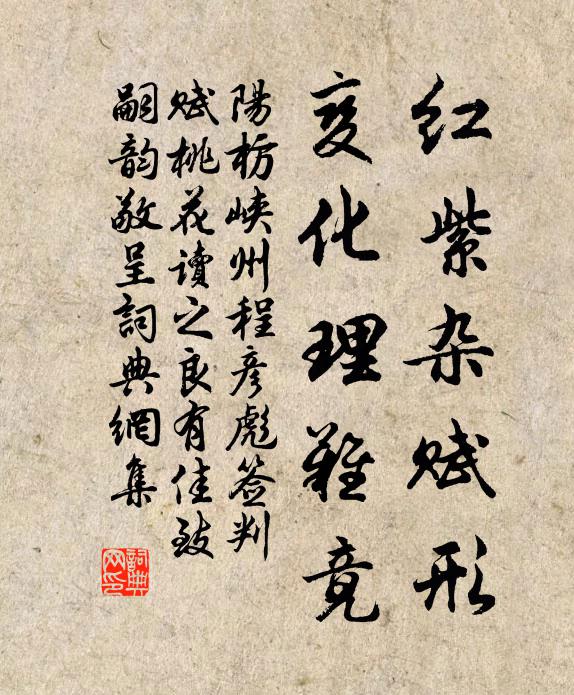 红紫杂赋形
变化理难竟
陽枋峡州程彦彪签判
赋桃花读之良有佳致
嗣韵敬呈詞典網集
詞典网印